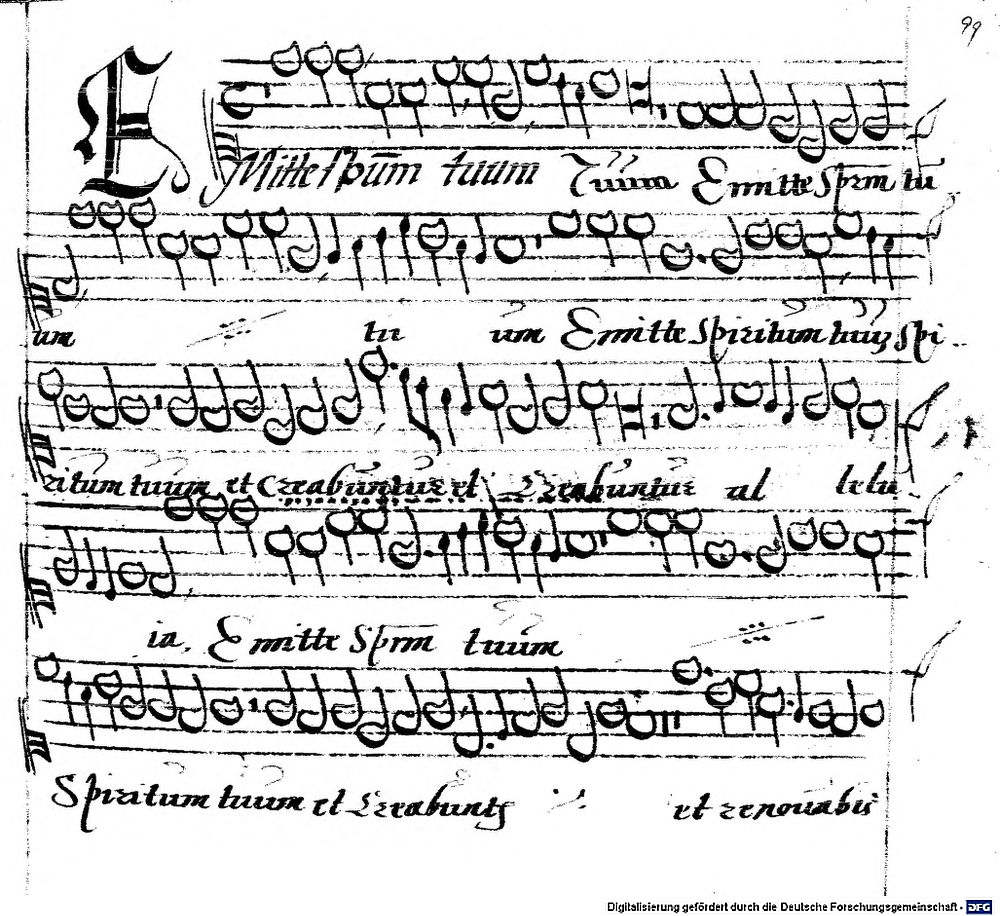 99
EMitte spūm tuum Tuum Emitte Sprm tū
um tu um Emitte Spiritum tuuʒ Spi
ritum tuum et Creabuntur et Creabuntur al lelu
ia, Emitte Sprm tuum
Spiritum tuum et Creabunt et renouabis
Digitalisierung gefördert durch die Deutsche Forschungsgemeinschaft - DFG